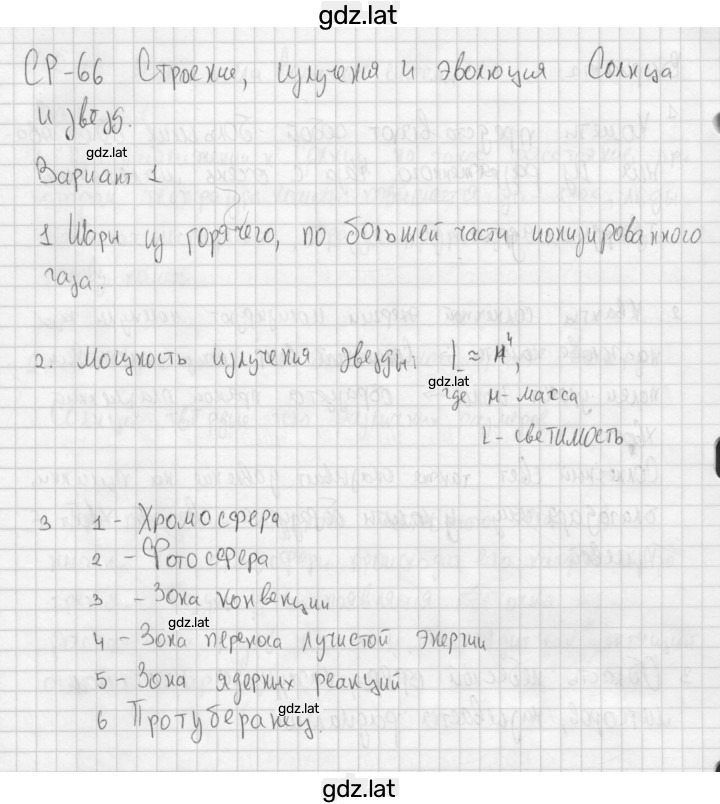 gdz.lat
СР-66 Строение, излучения и эволюция Солнца
и звёзд.
gdz.lat
Вариант 1
1 Шары из горячего, по большей части ионизированного
газа.
2. Мощность излучения звезды: L ≈ M⁴,
gdz.lat
где M - масса
L - светимость
3 1 - Хромосфера
2 - Фотосфера
3 - Зона конвекции
gdz.lat
4 - Зона переноса лучистой энергии
5 - Зона ядерных реакций
gdz.lat
6 Протуберанец.
gdz.lat